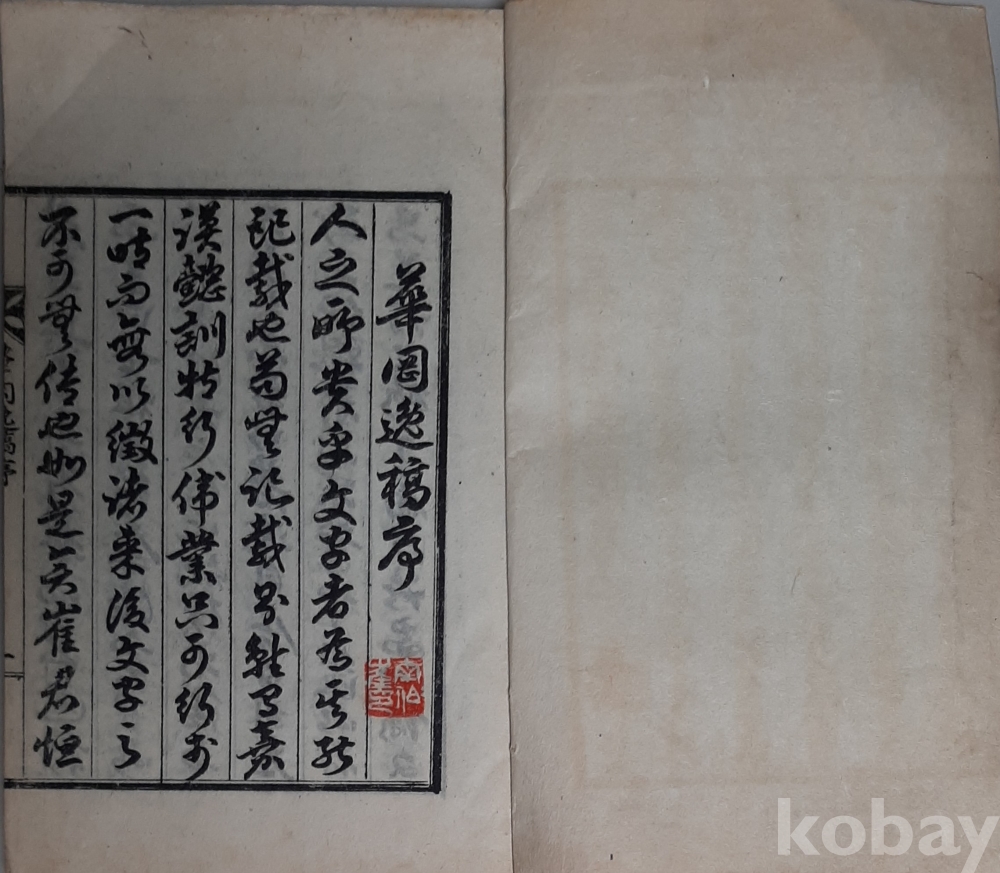 華岡逸稿序
人之所貴乎文字者爲其能
記載也苟無記載則雖有嘉
謨懿訓特行偉業只可行於
一時而無以徵諸來後文字之
不可無傳也如是矣崔君恒
kobay